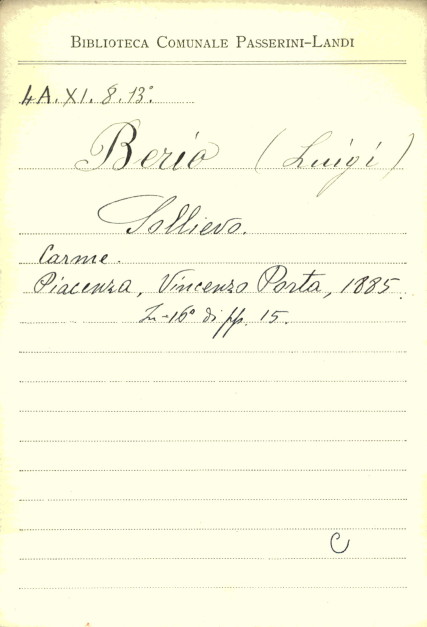 BIBLIOTECA COMUNALE PASSERINI-LANDI
4A. XI. 8. 13°.
Berio (Luigi)
Sollievo.
Carme.
Piacenza, Vincenzo Porta, 1885.
In-16° di pp. 15.
C